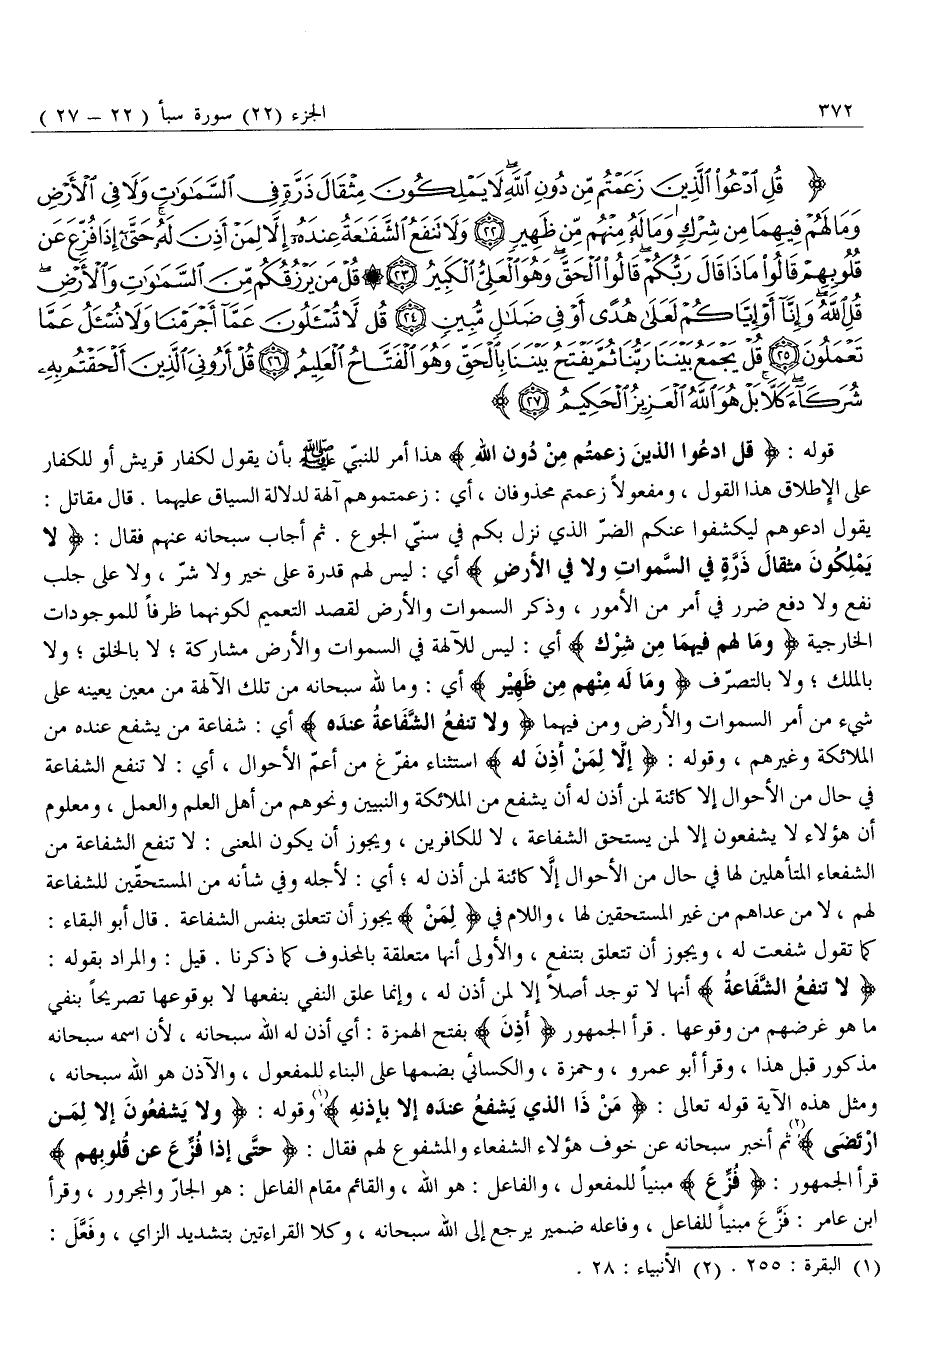 ٣٧٢ الجزء (٢٢) سورة سبأ ( ٢٢ – ٢٧ )
﴿ قُلِ ٱدْعُوا۟ ٱلَّذِينَ زَعَمْتُم مِّن دُونِ ٱللَّهِ ۖ لَا يَمْلِكُونَ مِثْقَالَ ذَرَّةٍ فِى ٱلسَّمَٰوَٰتِ وَلَا فِى ٱلْأَرْضِ
وَمَا لَهُمْ فِيهِمَا مِن شِرْكٍ وَمَا لَهُۥ مِنْهُم مِّن ظَهِيرٍ ﴿٢٢﴾ وَلَا تَنفَعُ ٱلشَّفَٰعَةُ عِندَهُۥٓ إِلَّا لِمَنْ أَذِنَ لَهُۥ ۚ حَتَّىٰٓ إِذَا فُزِّعَ عَن
قُلُوبِهِمْ قَالُوا۟ مَاذَا قَالَ رَبُّكُمْ ۖ قَالُوا۟ ٱلْحَقَّ ۖ وَهُوَ ٱلْعَلِىُّ ٱلْكَبِيرُ ﴿٢٣﴾ ۞ قُلْ مَن يَرْزُقُكُم مِّنَ ٱلسَّمَٰوَٰتِ وَٱلْأَرْضِ ۖ
قُلِ ٱللَّهُ ۖ وَإِنَّآ أَوْ إِيَّاكُمْ لَعَلَىٰ هُدًى أَوْ فِى ضَلَٰلٍ مُّبِينٍ ﴿٢٤﴾ قُل لَّا تُسْـَٔلُونَ عَمَّآ أَجْرَمْنَا وَلَا نُسْـَٔلُ عَمَّا
تَعْمَلُونَ ﴿٢٥﴾ قُلْ يَجْمَعُ بَيْنَنَا رَبُّنَا ثُمَّ يَفْتَحُ بَيْنَنَا بِٱلْحَقِّ وَهُوَ ٱلْفَتَّاحُ ٱلْعَلِيمُ ﴿٢٦﴾ قُلْ أَرُونِىَ ٱلَّذِينَ أَلْحَقْتُم بِهِۦ
شُرَكَآءَ ۖ كَلَّا ۚ بَلْ هُوَ ٱللَّهُ ٱلْعَزِيزُ ٱلْحَكِيمُ ﴿٢٧﴾ ﴾
قوله : ﴿ قل ادعُوا الذينَ زعمتم مِنْ دُون اللهِ ﴾ هذا أمر للنبيّ ﷺ بأن يقول لكفار قريش أو للكفار
على الإطلاق هذا القول ، ومفعولاً زعمتم محذوفان ، أي : زعمتموهم آلهة لدلالة السياق عليهما . قال مقاتل :
يقول ادعوهم ليكشفوا عنكم الضرّ الذي نزل بكم في سنيّ الجوع . ثم أجاب سبحانه عنهم فقال : ﴿ لا
يَمْلِكُونَ مثقالَ ذَرَّةٍ في السَّمواتِ ولا في الأرضِ ﴾ أي : ليس لهم قدرة على خير ولا شرّ ، ولا على جلب
نفع ولا دفع ضرر في أمر من الأمور ، وذكر السموات والأرض لقصد التعميم لكونهما ظرفاً للموجودات
الخارجية ﴿ وما لهم فيهِمَا مِن شِرْك ﴾ أي : ليس للآلهة في السموات والأرض مشاركة ؛ لا بالخلق ؛ ولا
بالملك ؛ ولا بالتصرّف ﴿ وما لَه مِنْهم مِن ظَهِيْر ﴾ أي : وما لله سبحانه من تلك الآلهة من معين يعينه على
شيء من أمر السموات والأرض ومن فيهما ﴿ ولا تنفعُ الشَّفَاعةُ عندَه ﴾ أي : شفاعة من يشفع عنده من
الملائكة وغيرهم ، وقوله : ﴿ إلَّا لِمَنْ أَذِنَ له ﴾ استثناء مفرّغ من أعمّ الأحوال ، أي : لا تنفع الشفاعة
في حال من الأحوال إلا كائنة لمن أذن له أن يشفع من الملائكة والنبيين ونحوهم من أهل العلم والعمل ، ومعلوم
أن هؤلاء لا يشفعون إلا لمن يستحق الشفاعة ، لا للكافرين ، ويجوز أن يكون المعنى : لا تنفع الشفاعة من
الشفعاء المتأهلين لها في حال من الأحوال إلَّا كائنة لمن أذن له ؛ أي : لأجله وفي شأنه من المستحقّين للشفاعة
لهم ، لا من عداهم من غير المستحقين لها ، واللام في ﴿ لِمَنْ ﴾ يجوز أن تتعلق بنفس الشفاعة . قال أبو البقاء :
كما تقول شفعت له ، ويجوز أن تتعلق بتنفع ، والأولى أنها متعلقة بالمحذوف كما ذكرنا . قيل : والمراد بقوله :
﴿ لا تنفعُ الشَّفَاعةُ ﴾ أنها لا توجد أصلاً إلا لمن أذن له ، وإنما علق النفي بنفعها لا بوقوعها تصريحاً بنفي
ما هو غرضهم من وقوعها . قرأ الجمهور ﴿ أَذِنَ ﴾ بفتح الهمزة : أي أذن له الله سبحانه ، لأن اسمه سبحانه
مذكور قبل هذا ، وقرأ أبو عمرو ، وحمزة ، والكسائي بضمها على البناء للمفعول ، والآذن هو الله سبحانه ،
ومثل هذه الآية قوله تعالى : ﴿ مَنْ ذَا الذي يَشفعُ عندَه إلا بإذنهِ ﴾(١) وقوله : ﴿ ولا يَشفعُونَ إلا لِمَن
ارْتَضَى ﴾(٢) ثم أخبر سبحانه عن خوف هؤلاء الشفعاء والمشفوع لهم فقال : ﴿ حتَّى إذا فُزِّعَ عن قُلوبِهم ﴾
قرأ الجمهور : ﴿ فُزِّعَ ﴾ مبنياً للمفعول ، والفاعل : هو الله ، والقائم مقام الفاعل : هو الجارّ والمجرور ، وقرأ
ابن عامر : فَزَّعَ مبنياً للفاعل ، وفاعله ضمير يرجع إلى الله سبحانه ، وكلا القراءتين بتشديد الزاي ، وفَعَّلَ :
(١) البقرة : ٢٥٥ . (٢) الأنبياء : ٢٨ .